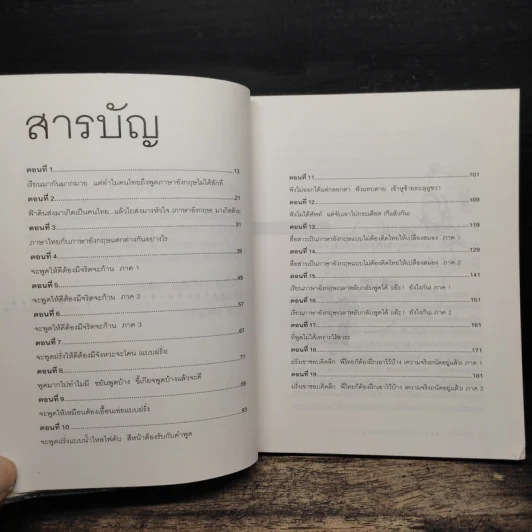 สารบัญ
ตอนที่ 1 13
เรียนมากันมากมาย แต่ทำไมคนไทยถึงพูดภาษาอังกฤษไม่ได้สักที
ตอนที่ 2 21
ฟ้าดินส่งมาเกิดเป็นคนไทย...แล้วไยส่งมารหัวใจ (ภาษาอังกฤษ) มาเกิดด้วย
ตอนที่ 3 31
ภาษาไทยกับภาษาอังกฤษแตกต่างกันอย่างไร
ตอนที่ 4 39
จะพูดให้ดีต้องมีจริตจะก้าน ภาค 1
ตอนที่ 5 49
จะพูดให้ดีต้องมีจริตจะก้าน ภาค 2
ตอนที่ 6 57
จะพูดให้ดีต้องมีจริตจะก้าน ภาค 3
ตอนที่ 7 67
จะพูดฝรั่งให้ดีต้องมีจังหวะจะโคน (แบบฝรั่ง)
ตอนที่ 8 77
พูดมากไปทำไมมี ขยันพูดบ้าง ขี้เกียจพูดบ้างแล้วจะดี
ตอนที่ 9 89
จะพูดให้เหมือนต้องเอื้อนเอ่ยแบบฝรั่ง
ตอนที่ 10 93
จะพูดฝรั่งแบบน้ำไหลไฟดับ สีหน้าต้องรับกับคำพูด
ตอนที่ 11 101
ฟังไม่ออกได้แต่กลอกตา ฟังแทบตาย เข้าหูซ้ายทะลุหูขวา
ตอนที่ 12 109
ฟังไม่ได้ศัพท์ แต่จับเอาไปกระเดียด (กันแล้วกัน)
ตอนที่ 13 119
สื่อสารเป็นภาษาอังกฤษแบบไม่ต้องคิดไทยให้เปลืองสมอง ภาค 1
ตอนที่ 14 129
สื่อสารเป็นภาษาอังกฤษแบบไม่ต้องคิดไทยให้เปลืองสมอง ภาค 2
ตอนที่ 15 141
เรียนภาษาอังกฤษเวลาหลับกลับพูดได้ (เอ๊ะ! ยังไงกัน) ภาค 1
ตอนที่ 16 151
เรียนภาษาอังกฤษเวลาหลับกลับพูดได้ (เอ๊ะ! ยังไงกัน) ภาค 2
ตอนที่ 17 161
ที่พูดไม่ได้เพราะไร้สาระ
ตอนที่ 18 171
ฝรั่งเขาชอบคิดลึก พี่ไทยก็ต้องฝึกเอาไว้บ้าง (ความจริงถนัดอยู่แล้ว) ภาค 1
ตอนที่ 19 181
ฝรั่งเขาชอบคิดลึก พี่ไทยก็ต้องฝึกเอาไว้บ้าง (ความจริงถนัดอยู่แล้ว) ภาค 2